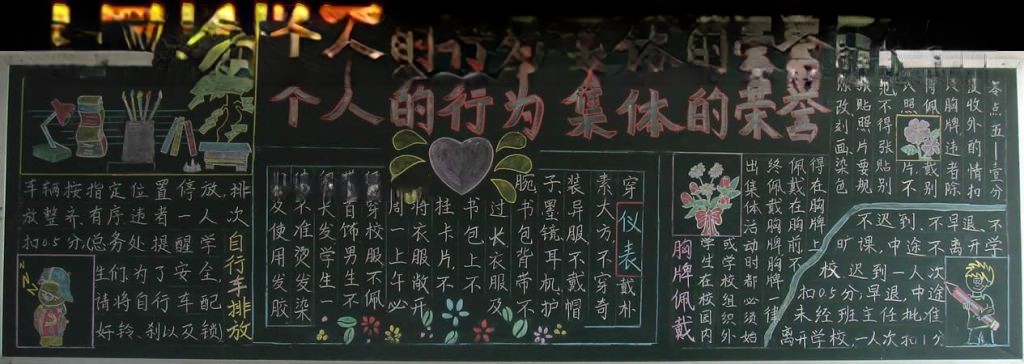 个人的行为 集体的荣誉
车辆按指定位置停放,排
放整齐,有序违者一人、次
扣0.5分(总务处提醒学
生们为了安全,
请将自行车配
好铃、刹以及锁)
自行车排放
仪表
穿戴朴
素大方,不穿奇
装异服,不戴帽
子墨镜、耳机、护
腕,书包背带不
过长,衣服及
书包上不
挂卡片,不
将衣服敞开
周一上午必
穿校服,不佩
首饰,男生不
长发,学生一
不准烫发染
及使用发胶
胸牌佩戴
学生在校园内
或学校组织外
出集体活动时都必须始
终佩戴胸牌,胸牌一律
佩戴在胸前,不
得在胸牌上
涂改、刻画、染色
张贴照片要规
范不得张贴别
人照片,不
得佩戴别
人胸牌违者除
没收外的情扣
零点五—壹分
不迟到、不早退、不
旷课,中途不离开学
校,迟到一人次
扣0.5分,早退,中途
未经班主任批准
离开学校,一人次扣1分